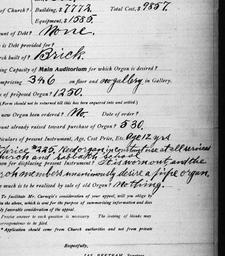 of Church? Building, $7772. Total Cost, $9857.
Equipment, $1585.
nt of Debt? None.
is Debt provided for?
rch built of? Brick.
ing Capacity of Main Auditorium for which Organ is desired?
omprising 346 on floor and no gallery, in Gallery.
e of proposed Organ? 1250.
(Form should not be returned till this has been enquired into and settled.)
new Organ been ordered? No. Date of order?
unt already raised toward purchase of Organ? $ 530.
iculars of present Instrument, Age, Cost Price, Etc. Age 12 yrs
price $225. Reed organ in constant use at all services
church and Sabbath school
on for displacing present Instrument? and the
members unanimously desire a pipe organ.
much is to be realized by sale of old Organ? Nothing.
To facilitate Mr. Carnegie's consideration of your appeal, will you oblige by
in the above, which is and for the purpose of summarizing information and does
ly favorable consideration of the appeal.
Precise answer to each question is necessary. The leaving of blanks may
correspondence to be filed.
* Application should come from Church authorities and not from private
Respectfully,
JAS. BERTRAM,